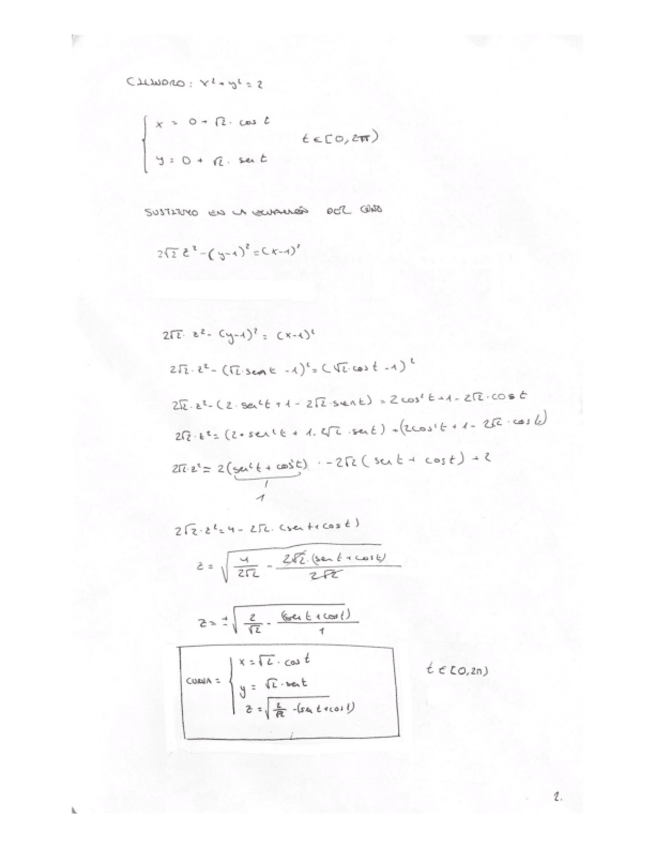 CILINDRO: x² + y² = 2
x = 0 + √2 · cos t
t ∈ [0, 2π)
y = 0 + √2 · sen t
SUSTITUYO EN LA ECUACIÓN DEL CONO
2√2 z² - (y-1)² = (x-1)²
2√2 · z² - (y-1)² = (x-1)²
2√2 · z² - (√2 · sen t - 1)² = (√2 · cos t - 1)²
2√2 · z² - (2 · sen² t + 1 - 2√2 · sen t) = 2 cos² t + 1 - 2√2 · cos t
2√2 · z² = (2 · sen² t + 1 - 2√2 · sen t) + (2cos² t + 1 - 2√2 · cos t)
2√2 · z² = 2 (sen² t + cos² t) - 2√2 (sen t + cos t) + 2
1
2√2 · z² = 4 - 2√2 · (sen t + cos t)
z = √(4/2√2 - 2√2 · (sen t + cos t)/2√2)
z = ±√(2/√2 - (sen t + cos t)/1)
x = √2 · cos t
t ∈ [0, 2π)
CURVA = y = √2 · sen t
z = √(2/√2 - (sen t + cos t))
2.